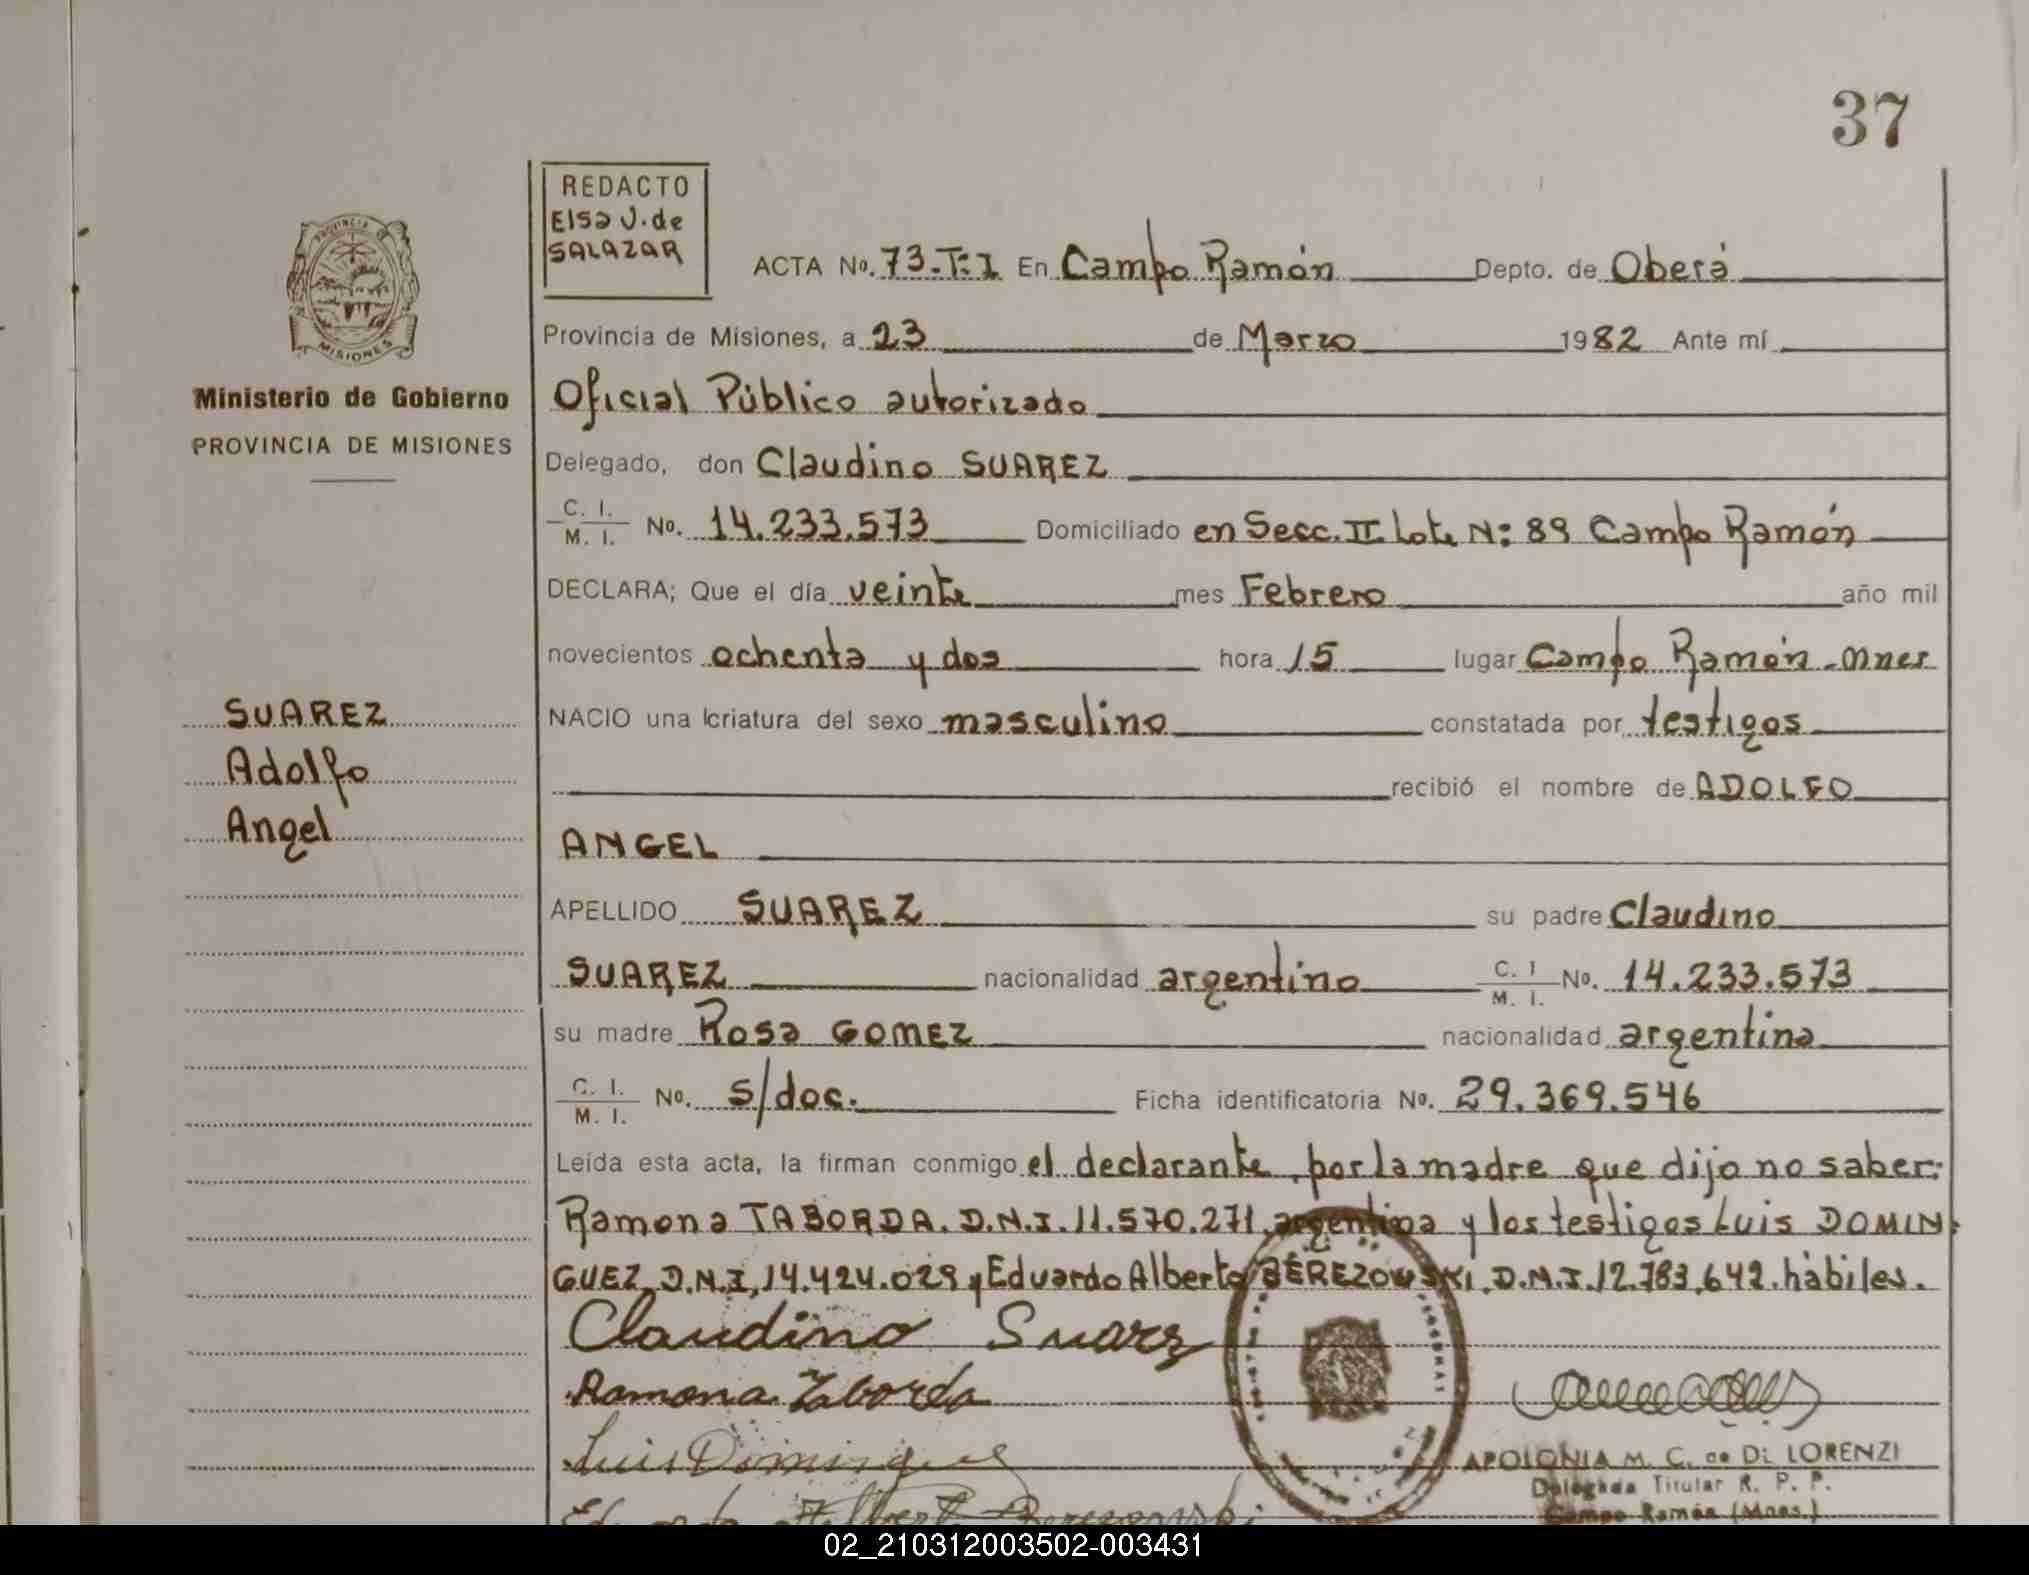 37
REDACTO
Elsa V. de
SALAZAR
PROVINCIA DE
MISIONES
Ministerio de Gobierno
PROVINCIA DE MISIONES
ACTA No. 73-T:1 En Campo Ramón Depto. de Oberá
Provincia de Misiones, a 23 de Marzo 1982 Ante mí
Oficial Público autorizado
Delegado, don Claudino SUAREZ
C. I. M. I. No. 14.233.573 Domiciliado en Secc. II Lote N: 89 Campo Ramón
DECLARA; Que el día veinte mes Febrero año mil
novecientos ochenta y dos hora 15 lugar Campo Ramón - Mnes
SUAREZ
Adolfo
Angel
NACIO una criatura del sexo masculino constatada por testigos
recibió el nombre de ADOLFO
ANGEL
APELLIDO SUAREZ su padre Claudino
SUAREZ nacionalidad argentino C. I M. I. No. 14.233.573
su madre Rosa GOMEZ nacionalidad argentina
C. I. M. I. No. s/doc. Ficha identificatoria No. 29.369.546
Leída esta acta, la firman conmigo el declarante, por la madre que dijo no saber:
Ramona TABORDA. D.N.I. 11.570.271, argentina y los testigos Luis DOMIN-
GUEZ, D.N.I, 14.424.029 y Eduardo Alberto BEREZOWSKI, D.N.I. 12.783.642. hábiles.
Claudino Suarz
Ramona Taborda
Luis Dominguez
APOLONIA M. C. de Di LORENZI
Delegada Titular R. P. P.
Campo Ramón (Mnes.)
Eduardo Alberto Berezowski
02_210312003502-003431